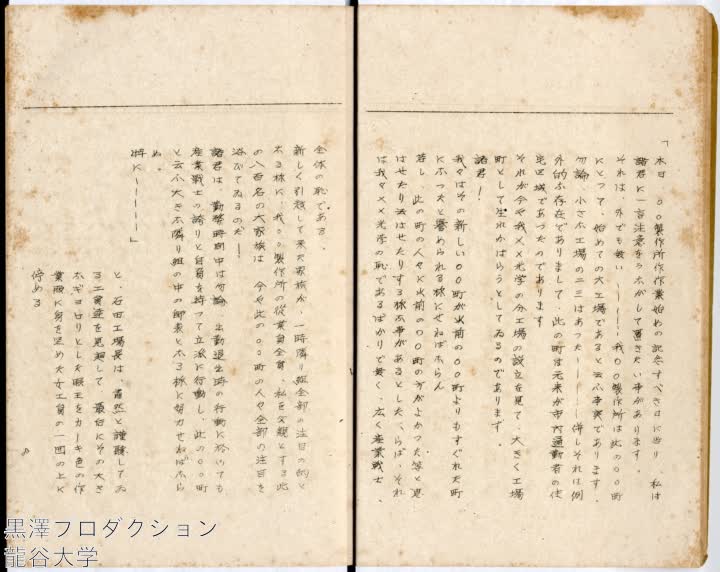 「本日、〇〇製作所作業始めの記念すべき日に当り、私は
諸君に一言注意をうながして置きたい事があります。
それは、外でも無い————我〇〇製作所は此の〇〇町
にとつて、始めての大工場であると云ふ事実であります。
勿論、小さな工場の二三はあつた————併しそれは例
外的な存在でありまして、此の町は元来が市内通勤者の住
宅区域であつたのであります
それが今や我××光学の分工場の設立を見て、大きく工場
町として生れかはらうとしてゐるのであります。
諸君!
我々はその新しい〇〇町が以前の〇〇町よりもすぐれた町
になつたと誉められる様にせねばならん
若し、此の町の人々に以前の〇〇町の方がよかつた等と思
はせたり云はせたりする様な事があるとしたならば、それ
は我々××光学の恥であるばかりで無く、広く産業戦士、
全体の恥である、
新しく引越して来た家族が、一時隣り組全部の注目の的と
なる様に、我〇〇製作所の従業員全員、私を父親とする此
の八百名の大家族は、今や此の〇〇町の人々全部の注目を
浴びてゐるのだ——
諸君は、勤務時間中は勿論、出勤退出時の行動に於いても
産業戦士の誇りと自負を持つて立派に行動し、此の〇〇町
と云ふ大きな隣り組の中の師表となる様に努力せねばなら
ぬ。
特に————」
と、石田工場長は、粛然と謹聴してゐ
る工員達を見廻して、最后にその大き
なギョロリとした眼玉をカーキ色の作
業服に身を固めた女工員の一団の上に
停める
8
黒澤プロダクション
龍谷大学